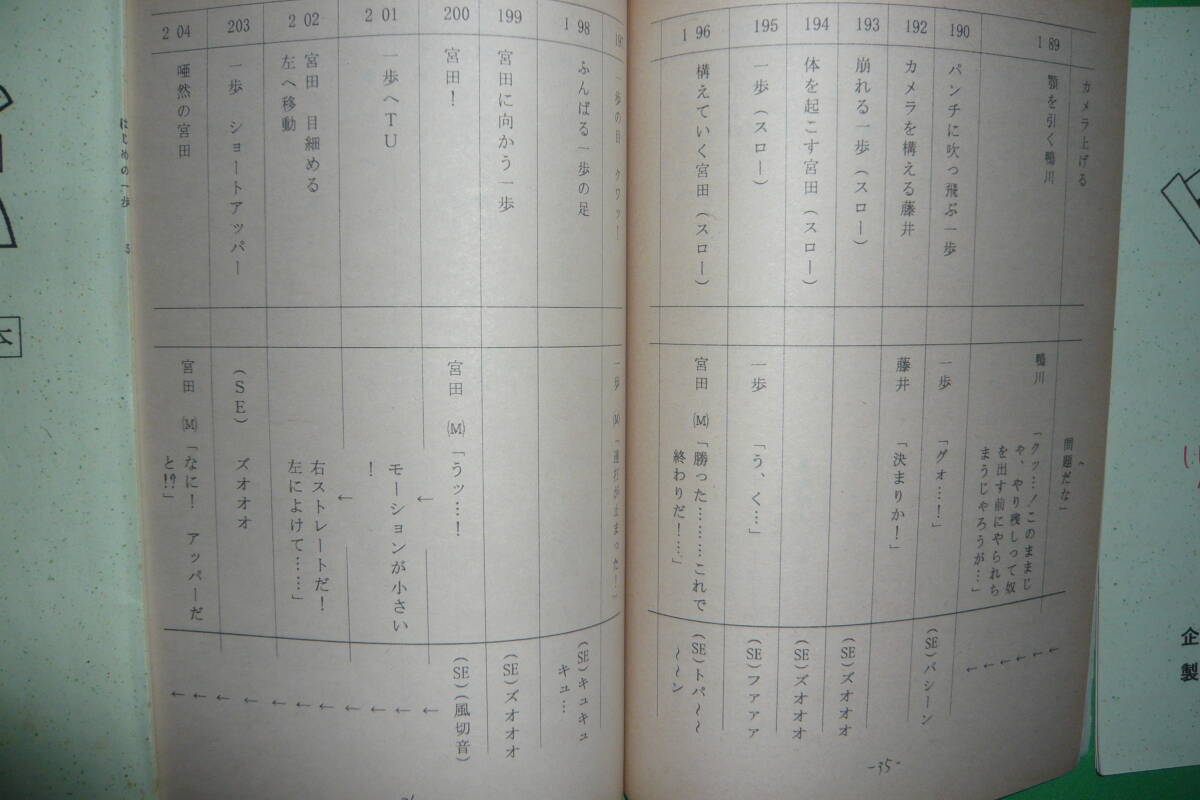 カメラ上げる
問題だな」
1 89
顎を引く鴨川
鴨川
「クッ…！このままじ
ゃ、やり残しって奴
を出す前にやられち
まうじゃろうが…」
←←←←←←
190
パンチに吹っ飛ぶ一歩
一歩
「グォ…！」
(SE)バシーン
192
カメラを構える藤井
藤井
「決まりか！」
193
崩れる一歩（スロー）
(SE)ズオオオ
194
体を起こす宮田（スロー）
(SE)ズオオオ
195
一歩（スロー）
一歩
「う、く…」
(SE)ファァァ
1 96
構えていく宮田（スロー）
宮田 (M)「勝った………これで
終わりだ！…」
(SE)トパ〜〜
〜〜ン
-35-
197
一歩の目 クワッ！
一歩 (M)「連打が止まった！」
1 98
ふんばる一歩の足
(SE)キュキュ
キュ…
199
宮田に向かう一歩
(SE)ズオオオ
200
宮田！
宮田 (M)「うッ…！
(SE)(風切音)
2 01
一歩へTU
←
モーションが小さい
！
2 02
宮田 目細める
左へ移動
←
右ストレートだ！
左によけて……」
203
一歩 ショートアッパー
(SE)
ズオオオ
2 04
唖然の宮田
宮田 (M)「なに！ アッパーだ
と!?」
←←←←←←←←←←
はじめの一歩 5
本
企
製